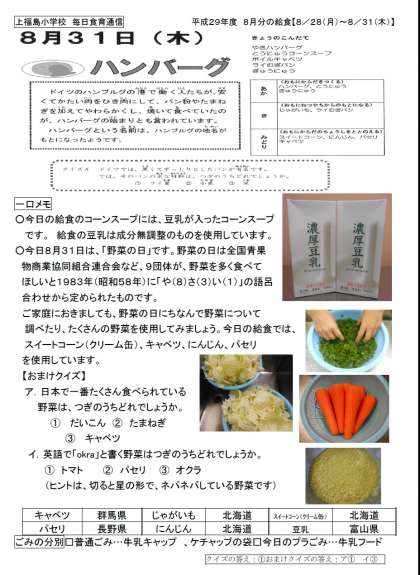 上福島小学校 毎日食育通信
平成29年度 8月分の給食【8/28(月)~8/31(木)】
8月31日(木)
ハンバーグ
きょうのこんだて
やきハンバーグ
とうにゅうコーンスープ
ボイルキャベツ
ライむぎパン
ぎゅうにゅう
ドイツのハンブルグの港で働く人たちが、安
くてかたい肉をひき肉にして、パン粉やたまね
ぎを加えてやわらかくし、焼いて食べていたの
が、ハンバーグの始まりとも言われています。
ハンバーグという名前は、ハンブルグの地名が
もとになったようです。
あか
ハンバーグ、とうにゅう
ぎゅうにゅう
き
じゃがいも、ライむぎパン
みどり
スイートコーン、にんじん、パセリ
キャベツ
一口メモ
○今日の給食のコーンスープには、豆乳が入ったコーンスープ
です。 給食の豆乳は成分無調整のものを使用しています。
○今日8月31日は、「野菜の日」です。野菜の日は全国青果
物商業協同組合連合会など、9団体が、野菜を多く食べて
ほしいと1983年(昭和58年)に「や(8)さ(3)い(1)」の語呂
合わせから定められたものです。
ご家庭におきましても、野菜の日にちなんで野菜について
調べたり、たくさんの野菜を使用してみましょう。今日の給食では、
スイートコーン(クリーム缶)、キャベツ、にんじん、パセリ
を使用しています。
【おまけクイズ】
ア. 日本で一番たくさん食べられている
野菜は、つぎのうちどれでしょうか。
① だいこん ② たまねぎ
③ キャベツ
イ. 英語で「okra」と書く野菜はつぎのうちどれでしょうか。
① トマト ② パセリ ③ オクラ
(ヒントは、切ると星の形で、ネバネバしている野菜です)
濃厚豆乳
濃厚豆乳
キャベツ 群馬県 じゃがいも 北海道 スイートコーン(クリーム缶) 北海道
パセリ 長野県 にんじん 北海道 豆乳 富山県
ごみの分別 □普通ごみ…牛乳キャップ、ケチャップの袋□今日のプラごみ…牛乳フード
クイズの答え:①おまけクイズの答え:ア① イ③